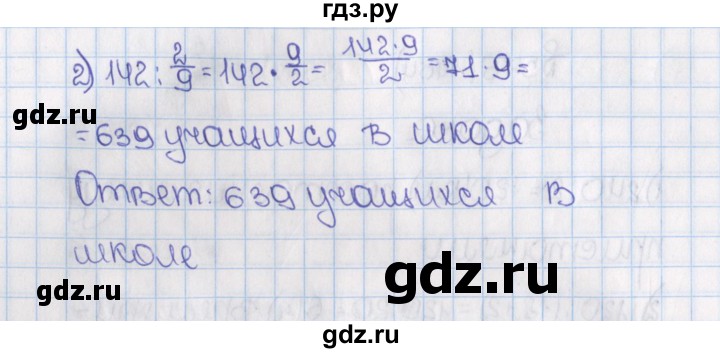 гдз.ру
2) 142 : 2/9 = 142 · 9/2 = 142·9/2 = 71·9 =
= 639 учащихся в школе
gdz.ru
gdz.ru
Ответ: 639 учащихся в
школе
gdz.ru
gdz.ru